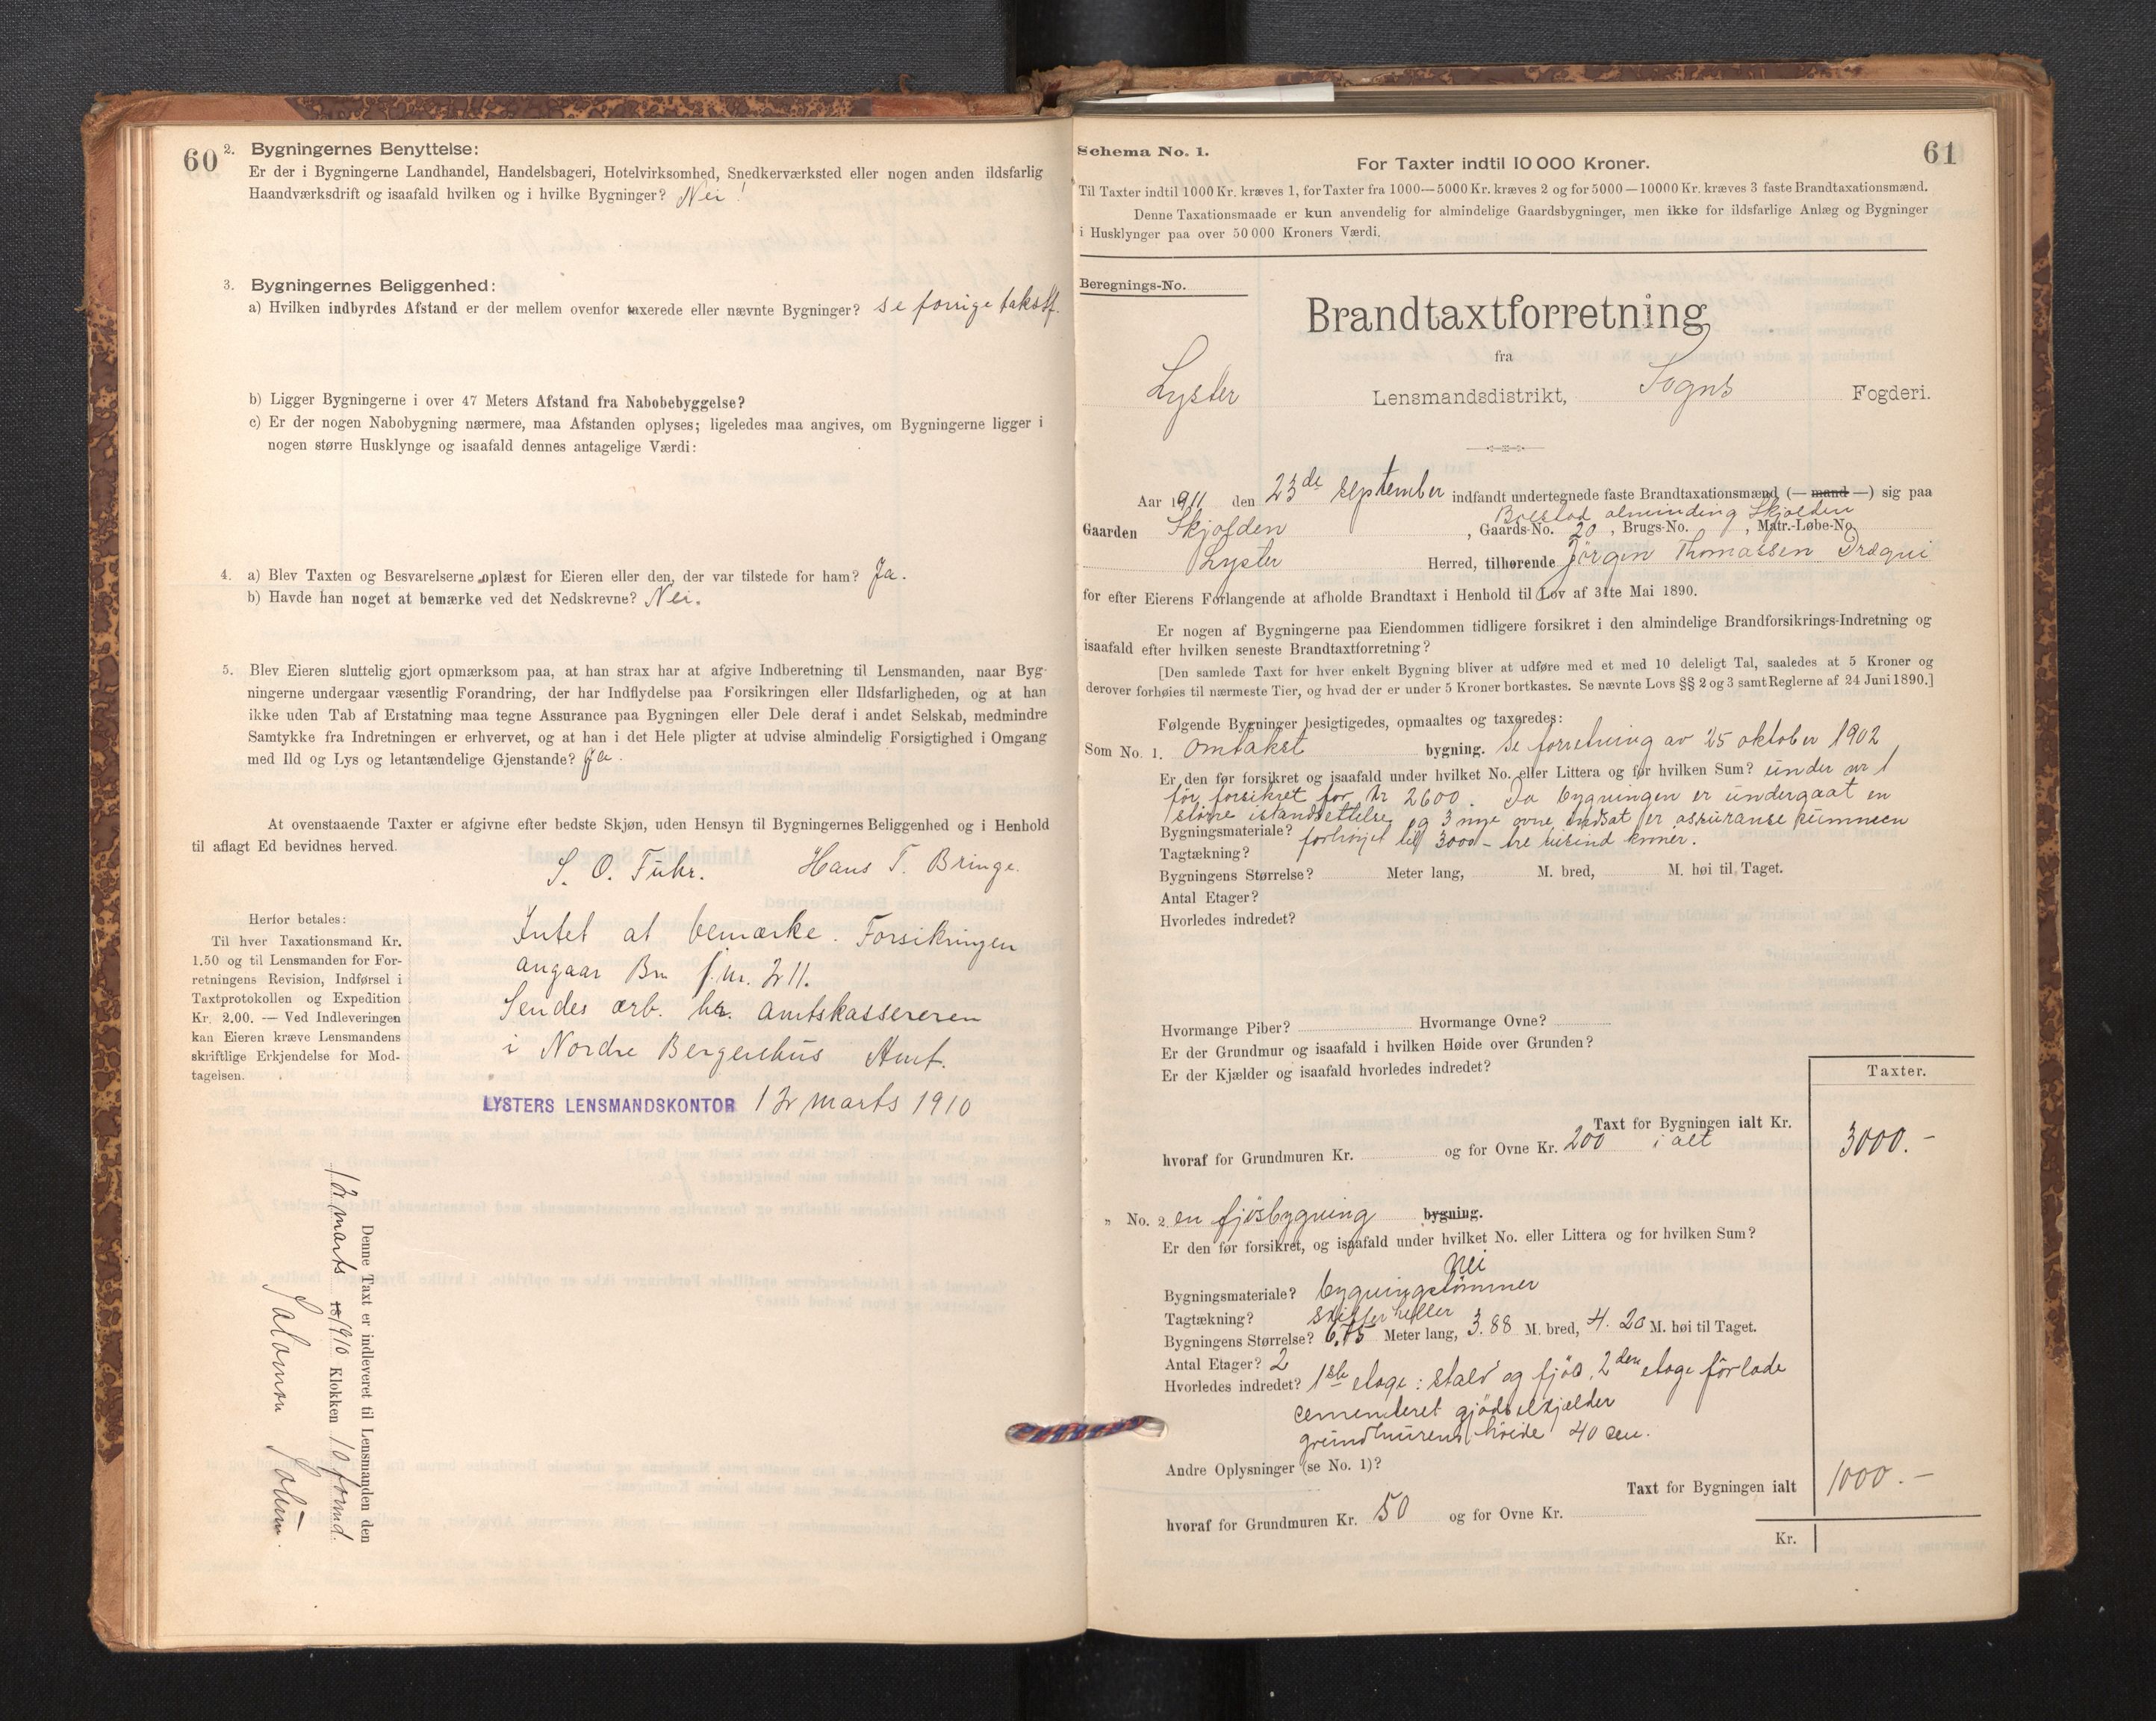 60
2. Bygningernes Benyttelse:
Er der i Bygningerne Landhandel, Handelsbageri, Hotelvirksomhed, Snedkerværksted eller nogen anden ildsfarlig
Haandværksdrift og isaafald hvilken og i hvilke Bygninger? Nei!
3. Bygningernes Beliggenhed:
a) Hvilken indbyrdes Afstand er der mellem ovenfor taxerede eller nævnte Bygninger? se forrige takstf.
b) Ligger Bygningerne i over 47 Meters Afstand fra Nabobebyggelse?
c) Er der nogen Nabobygning nærmere, maa Afstanden oplyses; ligeledes maa angives, om Bygningerne ligger i
nogen større Husklynge og isaafald dennes antagelige Værdi:
4. a) Blev Taxten og Besvarelserne oplæst for Eieren eller den, der var tilstede for ham? Ja.
b) Havde han noget at bemærke ved det Nedskrevne? Nei.
5. Blev Eieren sluttelig gjort opmærksom paa, at han strax har at afgive Indberetning til Lensmanden, naar Byg-
ningerne undergaar væsentlig Forandring, der har Indflydelse paa Forsikringen eller Ildsfarligheden, og at han
ikke uden Tab af Erstatning maa tegne Assurance paa Bygningen eller Dele deraf i andet Selskab, medmindre
Samtykke fra Indretningen er erhvervet, og at han i det Hele pligter at udvise almindelig Forsigtighed i Omgang
med Ild og Lys og letantændelige Gjenstande? Ja.
At ovenstaaende Taxter er afgivne efter bedste Skjøn, uden Hensyn til Bygningernes Beliggenhed og i Henhold
til aflagt Ed bevidnes herved.
S. O. Fuhr. Hans T. Bringe.
Herfor betales:
Til hver Taxationsmand Kr.
1.50 og til Lensmanden for For-
retningens Revision, Indførsel i
Taxtprotokollen og Expedition
Kr. 2.00. — Ved Indleveringen
kan Eieren kræve Lensmandens
skriftlige Erkjendelse for Mod-
tagelsen.
Intet at bemærke. Forsikringen
angaar Bn
Sendes ærb. hr. Amtskassereren
i Nordre Bergenhus Amt.
LYSTERS LENSMANDSKONTOR 12 marts 1910
Denne Taxt er indleveret til Lensmanden den
12 marts 18 1910 Klokken 10 formd.
Salomon
61
Schema No. 1.
For Taxter indtil 10 000 Kroner.
Til Taxter indtil 1000 Kr. kræves 1, for Taxter fra 1000—5000 Kr. kræves 2 og for 5000—10000 Kr. kræves 3 faste Brandtaxationsmænd.
Denne Taxationsmaade er kun anvendelig for almindelige Gaardsbygninger, men ikke for ildsfarlige Anlæg og Bygninger
i Husklynger paa over 50 000 Kroners Værdi.
Beregnings-No.
Brandtaxtforretning
fra
Lyster Lensmandsdistrikt, Sogns Fogderi.
Aar 1911 den 23de september indfandt undertegnede faste Brandtaxationsmænd (— mand —) sig paa
Bolstad alminding Skjolden
Gaarden Skjolden, Gaards-No. 20, Brugs-No. , Matr.-Løbe-No.
Lyster Herred, tilhørende Jörgen Thomassen Drægni
for efter Eierens Forlangende at afholde Brandtaxt i Henhold til Lov af 31te Mai 1890.
Er nogen af Bygningerne paa Eiendommen tidligere forsikret i den almindelige Brandforsikrings-Indretning og
isaafald efter hvilken seneste Brandtaxtforretning?
[Den samlede Taxt for hver enkelt Bygning bliver at udføre med et med 10 deleligt Tal, saaledes at 5 Kroner og
derover forhøies til nærmeste Tier, og hvad der er under 5 Kroner bortkastes. Se nævnte Lovs §§ 2 og 3 samt Reglerne af 24 Juni 1890.]
Følgende Bygninger besigtigedes, opmaaltes og taxeredes:
Som No. 1. omtakst bygning. Se forretning av 25 oktober 1902
Er den før forsikret og isaafald under hvilket No. eller Littera og for hvilken Sum? under nr 1
för forsikret for kr 2600. Da bygningen er undergaat en
större istandsættelse og 3 nye ovne indsat er assuranse summen
Bygningsmateriale? forhöjet til 3000 – tre tusind kroner.
Tagtækning?
Bygningens Størrelse? Meter lang, M. bred, M. høi til Taget.
Antal Etager?
Hvorledes indredet?
Hvormange Piber? Hvormange Ovne?
Er der Grundmur og isaafald i hvilken Høide over Grunden?
Er der Kjælder og isaafald hvorledes indredet?
Taxter.
Taxt for Bygningen ialt Kr.
hvoraf for Grundmuren Kr. og for Ovne Kr. 200 i alt 3000.–
„ No. 2 en fjösbygning bygning.
Er den før forsikret, og isaafald under hvilket No. eller Littera og for hvilken Sum?
Nei
Bygningsmateriale? bygningstömmer
Tagtækning? skiffer heller
Bygningens Størrelse? 6.75 Meter lang, 3.88 M. bred, 4.20 M. høi til Taget.
Antal Etager? 2
Hvorledes indredet? 1ste etage: stald og fjös, 2den etage förlade
cementeret gjödselkjelder
grundmurens höide 40 cm.
Andre Oplysninger (se No. 1)?
Taxt for Bygningen ialt 1000.–
hvoraf for Grundmuren Kr. 50 og for Ovne Kr.
Kr.